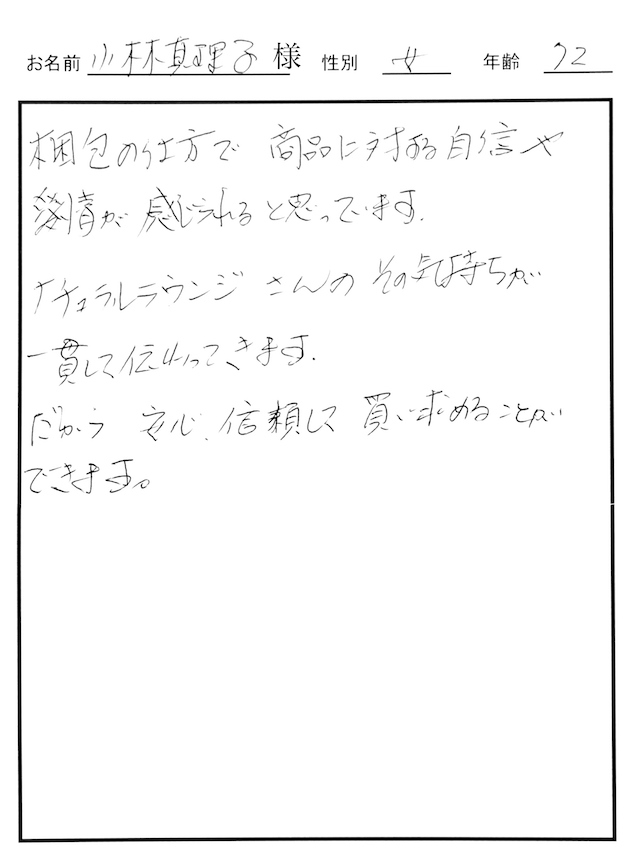 お名前 小林真理子 様 性別 女 年齢 72
梱包の仕方で 商品に対する自信や
愛情が 感じられると思っています.
ナチュラルラウンジ さんの その気持ちが
一貫して伝わってきます.
だから 安心、信頼して 買い求めることが
できます。